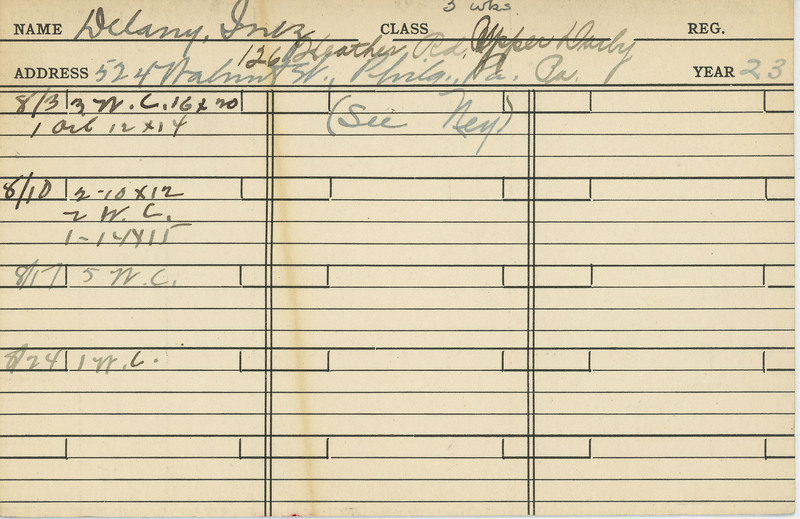 3 wks
NAME Delany, Inez CLASS REG.
126 Heather Rd. Upper Darby
ADDRESS 524 Walnut St., Phila., Pa. Pa. YEAR 23
8/3 3 W.C. 16x20 (See Ney)
1 Oil 12x14
8/10 2-10x12
2 W.C.
1-14x15
8/17 5 W.C.
8/24 1 W.C.